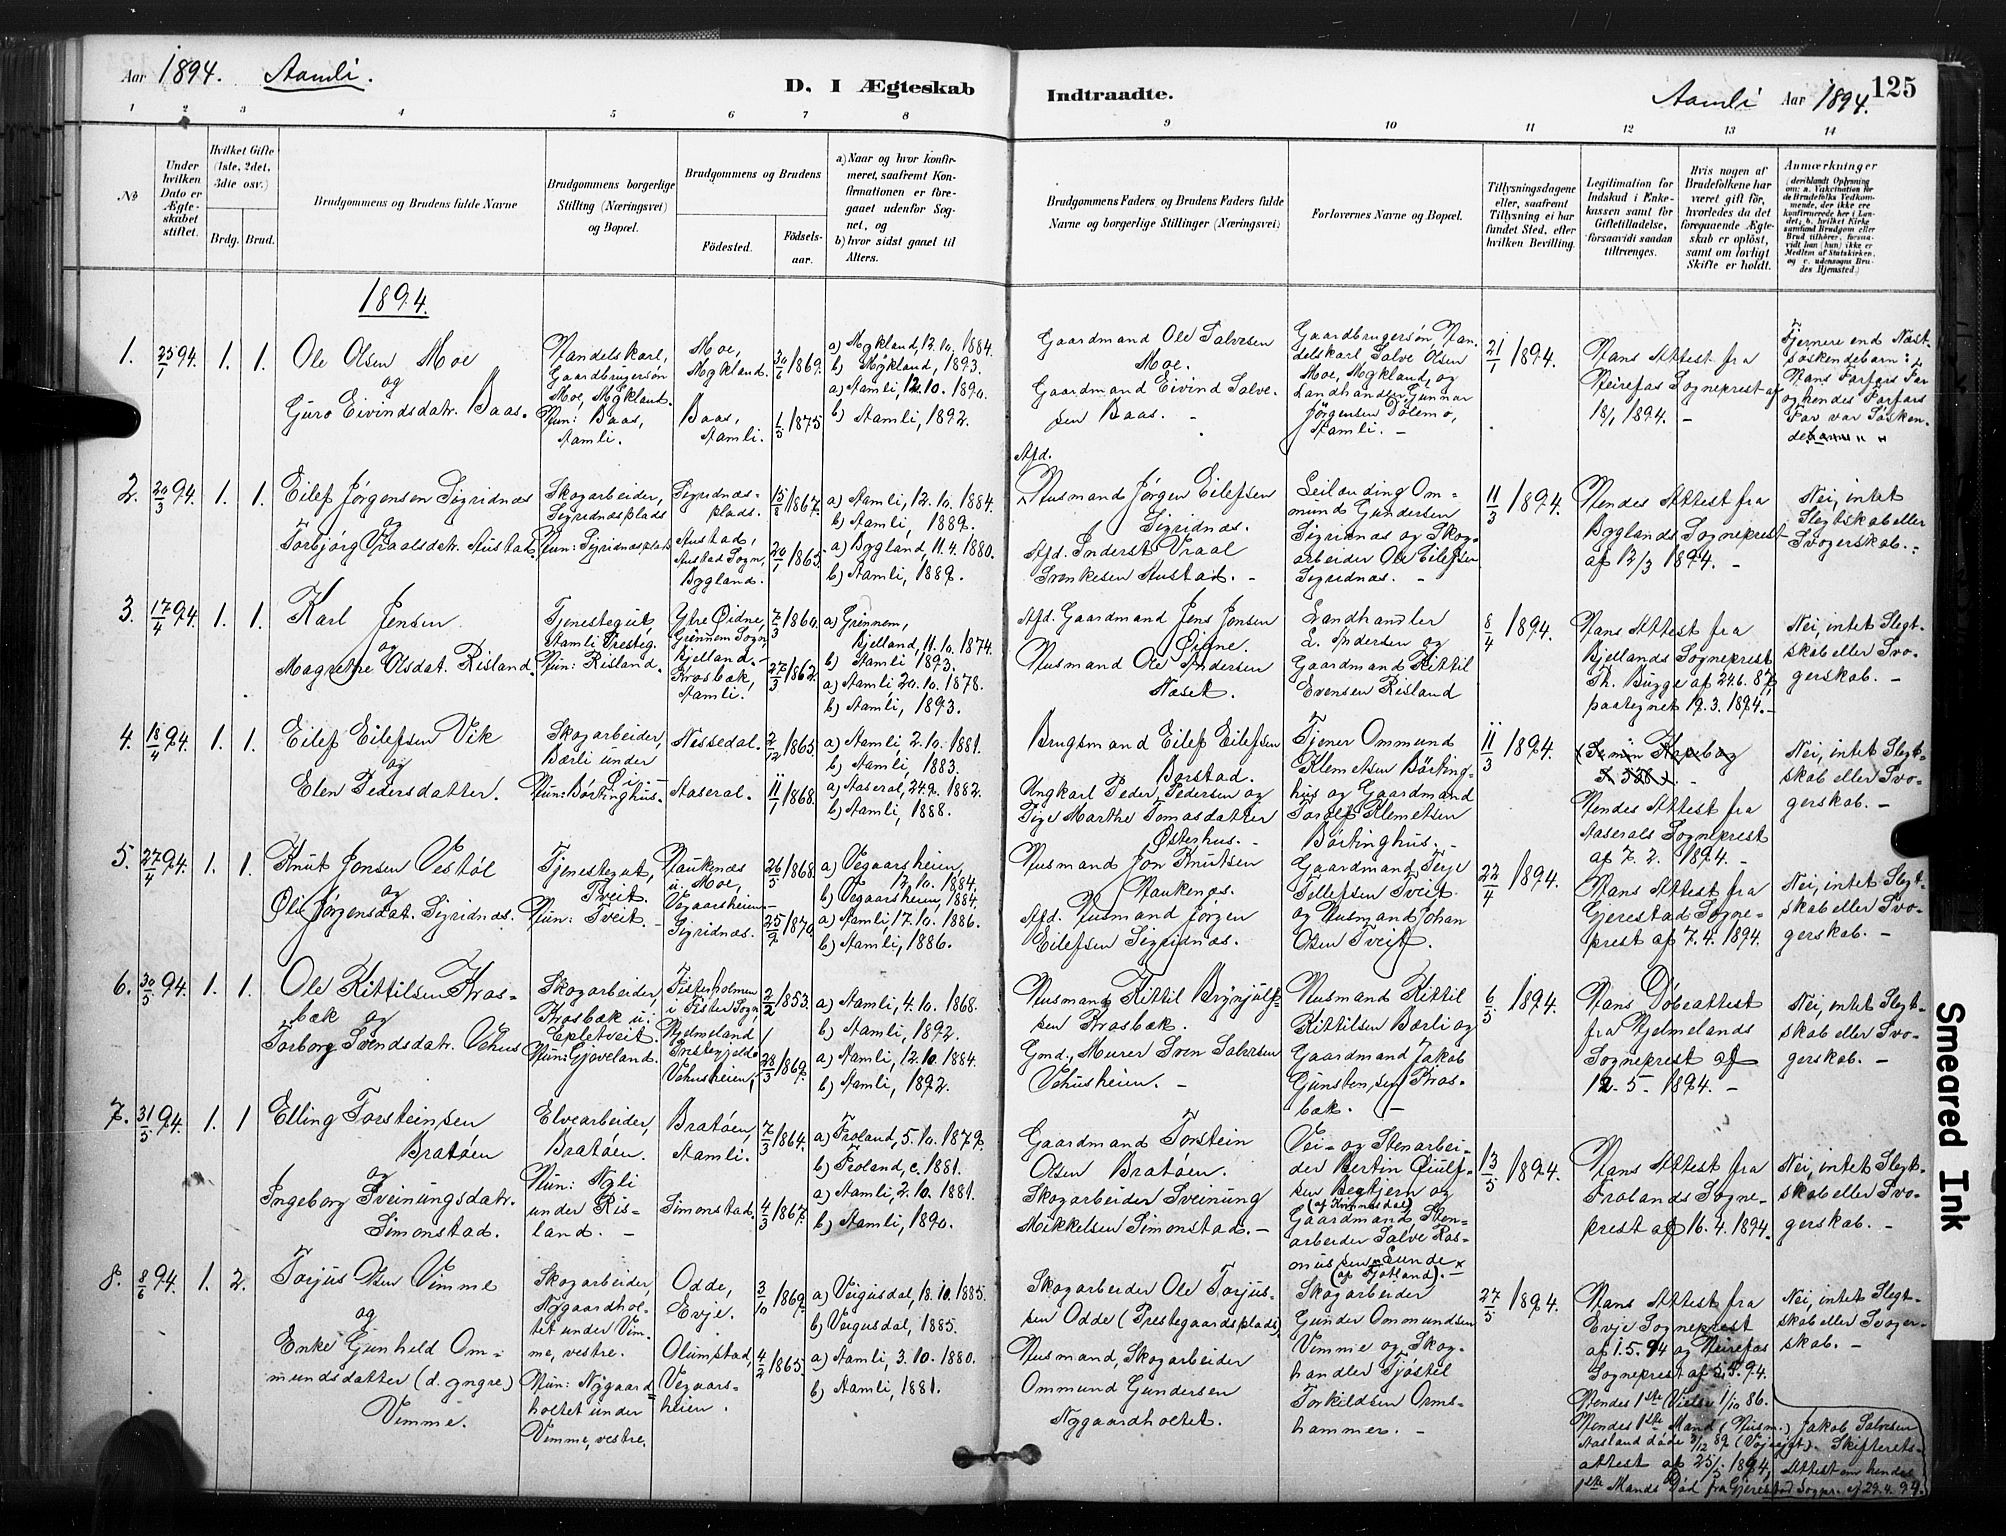 Aar 1894. Aamli.
D. I Ægteskab
Indtraadte.
Aamli Aar 1894. 125
1 2 3 4 5 6 7 8 9 10 11 12 13 14
No
Under hvilken Dato er Ægteskabet stiftet.
Hvilket Gifte (1ste, 2det, 3die osv.)
Brdg. Brud.
Brudgommens og Brudens fulde Navne
Brudgommens borgerlige Stilling (Næringsvei) og Bopæl.
Brudgommens og Brudens
Fødested.
Fødselsaar.
a) Naar og hvor Konfirmeret, saafremt Konfirmationen er foregaaet udenfor Sognet, og
b) hvor sidst gaaet til Alters.
Brudgommens Faders og Brudens Faders fulde Navne og borgerlige Stillinger (Næringsvei)
Forlovernes Navne og Bopæl.
Tillysningsdagene eller, saafremt Tillysning ei har fundet Sted, efter hvilken Bevilling.
Legitimation for Indskud i Enkekassen samt for Giftetilladelse, forsaavidt saadan tiltrænges.
Hvis nogen af Brudefolkene har været gift før, hvorledes da det foregaaende Ægteskab er opløst, samt om lovligt Skifte er holdt.
Anmærkninger
1894.
1. 25/1 94. 1. 1.
Ole Olsen Moe
og
Guro Eivindsdatr. Baas.
Handelskarl,
Gaardbrugersøn
Moe, Mykland.
Hun: Baas,
Aamli.
Moe,
Mykland.
Baas,
Aamli.
30/6 1869.
1/5 1875
a) Mykland, 12.10. 1884.
b) Mykland, 1893.
a) Aamli, 12.10. 1890.
b) Aamli, 1892.
Gaardmand Ole Salvesen
Moe.
Gaardmand Eivind Salve-
sen Baas.
Gaardbrugersøn, Han-
delskarl Salve Olsen
Moe, Mykland, og
Landhandler Gunnar
Jørgensen Dølemo,
Aamli.
21/1 1894.
Hans Attest fra
Herefos Sogneprest af
18/1 1894.
Fjernere end Næst-
søskendebarn:
Hans Farfars Far
og hendes Farfars
Far var Søsken-
de
2. 20/3 94. 1. 1.
Eilef Jørgensen Sigridnæs
og
Torbjørg Vraalsdatr. Austad
Skogarbeider,
Sigridnæsplads
Hun: Sigridnæsplads
Sigridnæs-
plads.
Austad,
Austad Sogn,
Bygland.
15/8 1867.
20/1 1865.
a) Aamli, 12.10. 1884.
b) Aamli, 1889.
a) Bygland, 11.4. 1880.
b) Aamli, 1889.
Afd.
Husmand Jørgen Eilefsen
Sigridnæs.
Afd. Inderst Vraal
Svenkesen Austad.
Leilænding Om-
mund Gundersen
Sigridnæs og Skog-
arbeider Ole Eilefsen
Sigridnæs.
11/3 1894.
Hendes Attest fra
Byglands Sogneprest
af 12/3 1894.
Nei, intet
Slegtskab eller
Svogerskab.
3. 17/4 94. 1. 1.
Karl Jensen
og
Magrethe Olsdat. Risland.
Tjenestegut
Aamli Presteg.
Hun: Risland.
Ytre Øidne,
Grinnem Sogn,
Bjelland.
Krosbæk,
Aamli.
7/3 1860.
27/3 1862.
a) Grinnem,
Bjelland, 11.10. 1874.
b) Aamli 1893.
a) Aamli 20.10. 1878.
b) Aamli, 1893.
Afd. Gaardmand Jens Jensen
Øidne.
Husmand Ole Andersen
Naset.
Landhandler
L. Andersen og
Gaardmand Kittil
Evensen Risland
8/4 1894.
Hans Attest fra
Bjellands Sogneprest
Th. Bugge af 24.6. 87,
paategnet 19.3. 1894.
Nei, intet Slegt-
skab eller Svo-
gerskab.
4. 18/4 94. 1. 1.
Eilef Eilefsen Vik
og
Elen Pedersdatter.
Skogarbeider,
Bærli under
Hun: Børtinghus.
Nissedal.
Aaseral.
2/12 1865.
11/1 1868.
a) Aamli, 2.10. 1881.
b) Aamli, 1883.
a) Aaseral, 24.9. 1882.
b) Aamli, 1888.
Brugsmand Eilef Eilefsen
Borstad.
Ungkarl Peder Pedersen og
Pige Marthe Tomasdatter
Østerhus.
Tjener Ommund
Klemetsen Børting-
hus og Gaardmand
Torolf Klemetsen
Børtinghus.
11/3 1894.
Hendes Attest fra
Aaserals Sogneprest
af 7. 2. 1894.
Nei, intet Slegt-
skab eller Svo-
gerskab.
5. 27/4 94. 1. 1.
Knut Jonsen Vestøl
og
Jørgensdat. Sigridnæs.
Tjenestegut,
Tveit.
Hun: Tveit.
Haukenæs
u. Moe,
Vegaarsheien.
Sigridnæs.
26/5 1868.
25/9 1870.
a) Vegaarsheien,
12.10. 1884.
b) Vegaarsheien, 1884.
a) Aamli, 17.10. 1886.
b) Aamli, 1886.
Husmand Jon Knutsen
Haukenæs.
Afd. Husmand Jørgen
Eilefsen Sigridnæs.
Gaardmand Teje
Tellefsen Tveit
og Husmand Johan
Olsen Tveit.
22/4 1894.
Hans Attest fra
Gjerestad Sogne-
prest af 7. 4. 1894.
Nei, intet Slegt-
skab eller Svo-
gerskab.
6. 30/5 94. 1. 1.
Ole Kittilsen Kros-
bæk og
Torborg Svendsdatr. Vehus
Skogarbeider,
Krosbæk u.
Eppletveit.
Hun: Gjøveland.
Fisterholmen
i Fister Sogn,
Hjelmeland
Prestegjeld.
Vehusheien,
2/2 1853.
28/3 1869.
a) Aamli, 4.10. 1868.
b) Aamli, 1892.
a) Aamli, 12.10. 1884.
b) Aamli, 1892.
Husmand Kittil Brynjulf-
sen Krosbæk.
Gmd., Murer Sven Salvesen
Vehusheien.
Husmand Kittil
Kittilsen Bærli og
Gaardmand Jakob
Gunstensen Kros-
bæk.
6/5 1894.
Hans Døbeattest
fra Hjelmelands
Sogneprest af
12. 5. 1894.
Nei, intet Slegt-
skab eller Svo-
gerskab.
7. 31/5 94. 1. 1
Elling Torsteinsen
Bratøen
og
Ingeborg Sveinungsdatr.
Simonstad.
Elvearbeider,
Bratøen.
Hun: Nyli
under Ris-
land.
Bratøen,
Aamli.
Simonstad.
7/3 1864.
4/3 1867.
a) Froland, 5.10. 1879.
b) Froland, c. 1881.
a) Aamli, 2.10. 1881.
b) Aamli, 1890.
Gaardmand Torstein
Olsen Bratøen.
Skogarbeider Sveinung
Mikkelsen Simonstad.
Vei- og Stenarbei-
der Bertin
sen Begtjern og
Gaardmand, Sten-
arbeider Salve Ras-
mussen Eunde
(af Fjotland).
13/5 1894.
Hans Attest fra
Frolands Sogne-
prest af 16. 4. 1894.
Nei, intet Slegt-
skab eller Svo-
gerskab.
8. 8/6 94. 1. 2.
Torjus Olsen Vimme
og
Enke Gunhild Om-
mundsdatter (d. yngre)
Vimme.
Skogarbeider,
Nygaardhol-
tet under Vim-
me, vestre.
Hun: Nygaard-
holtet under
Vimme, vestre.
Odde,
Evje.
Olumstad,
Vegaars-
heien.
3/10 1869.
4/2 1865.
a) Veigusdal, 18.10. 1885.
b) Veigusdal, 1885.
a) Aamli, 3.10. 1880.
b) Aamli, 1881.
Skogarbeider Ole Torjus-
sen Odde (Prestegaardsplads),
Husmand, Skogarbeider
Ommund Gundersen
Nygaardholtet.
Skogarbeider
Gunder Ommundsen
Vimme og Skog-
handler Tjøstel
Torkildsen Orms-
hammer.
27/5 1894.
Hans Attest fra
Evje Sogneprest
af 1.5. 94 og Herefos
Sogneprest af 5.5. 94.
Hendes 1ste Vielse 1/10 86.
Hendes 1ste Mand (Husm.) Jakob Salvesen
Aasland døde 3/12 89 Skifterets-
attest af 25/5 1894, Attest om hendes
1ste Mands Død fra Gjerestad Sogpr. af 29.4. 94.
Nei, intet Slegt-
skab eller Svoger-
skab.
Smeared Ink